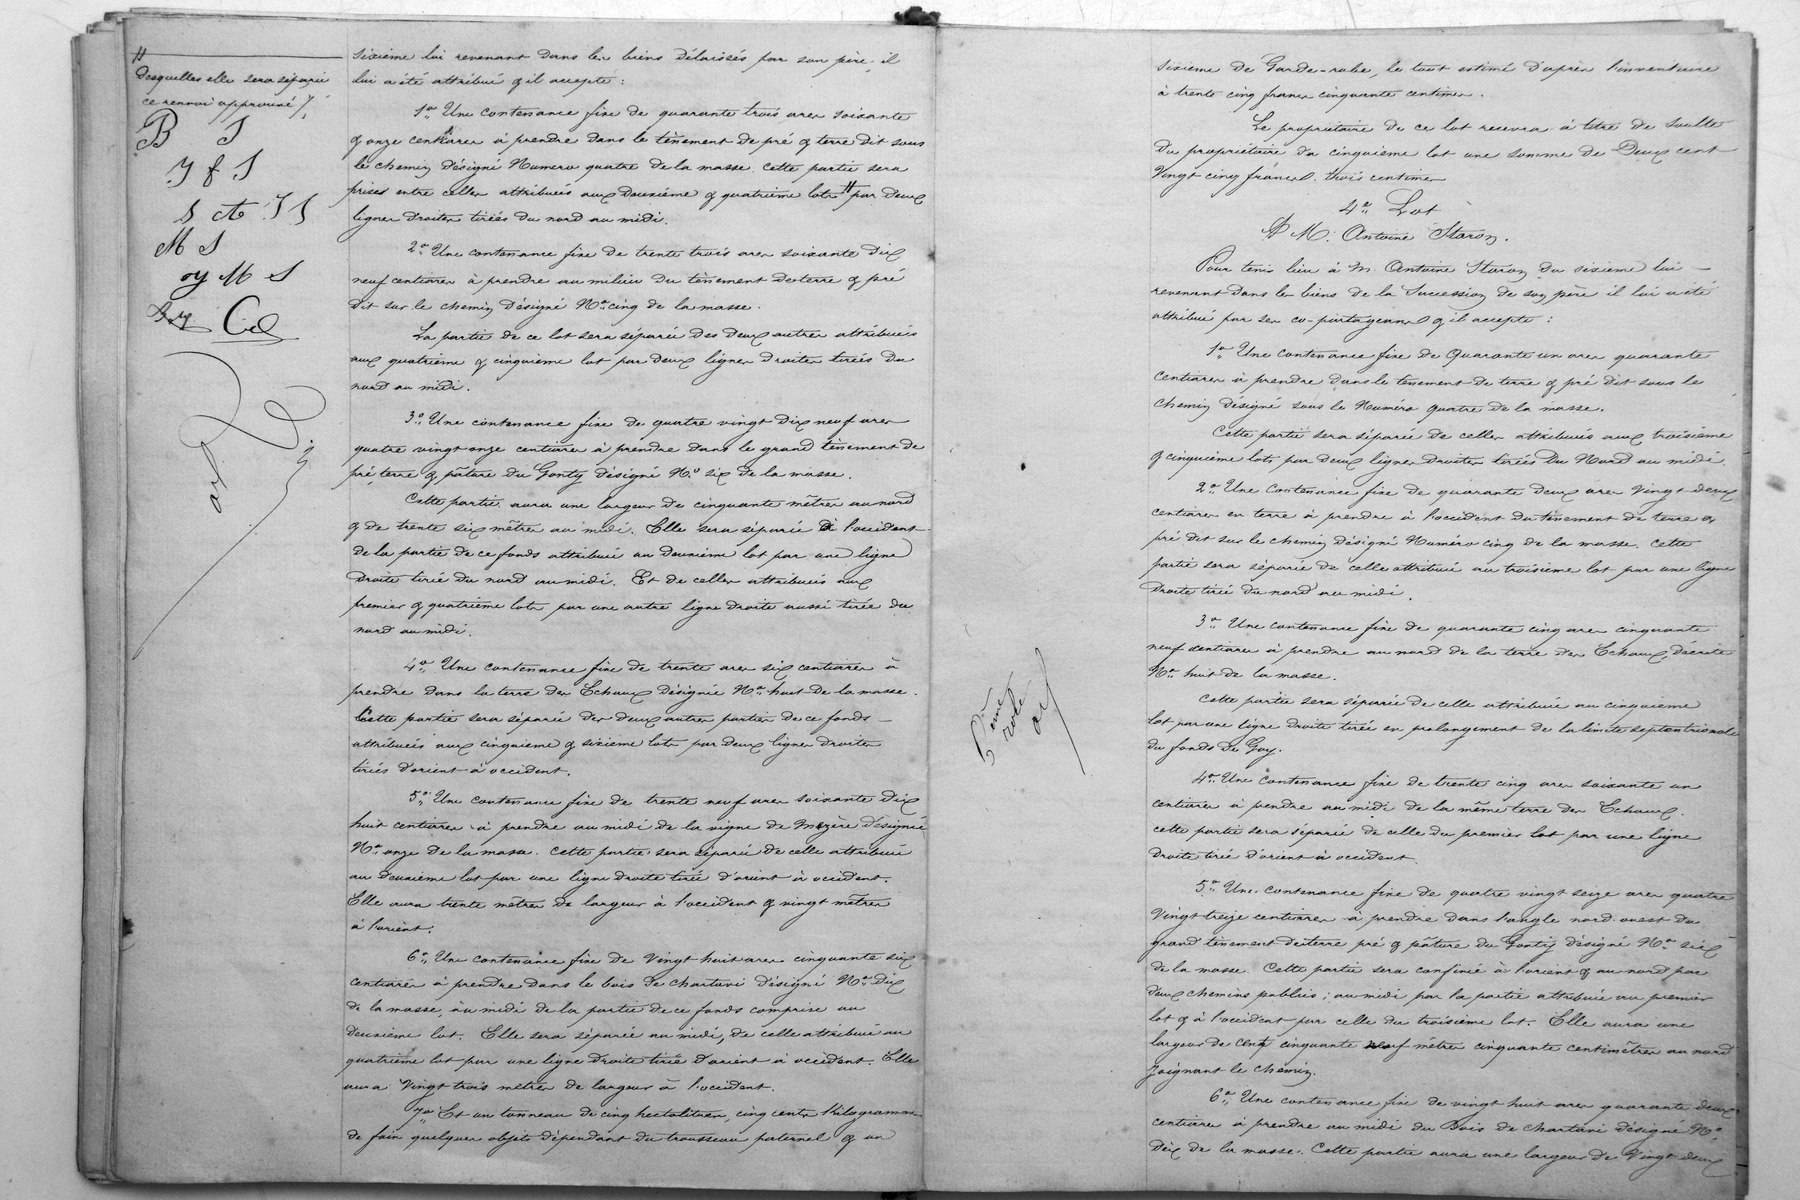 #
desquelles elle sera séparée
ce renvoi approuvé /.
B S
J f S
S ct J S
M S
oy M S
sixième lui revenant dans les biens délaissés par son père, il
lui a été attribué & il accepte :
1o. Une contenance fixe de quarante trois ares soixante
& onze centiares à prendre dans le tènement de pré & terre dit sous
le chemin désigné Numéro quatre de la masse. Cette partie sera
prises entre celles attribuées aux deuxième & quatrième lots # par deux
lignes droites tirées du nord au midi.
2o. Une contenance fixe de trente trois ares soixante dix
neuf centiares à prendre au milieu du tènement de terre & pré
dit sur le chemin désigné No. cinq de la masse.
La partie de ce lot sera séparée des deux autres attribuées
aux quatrième & cinquième lot par deux lignes droites tirées du
nord au midi.
3o. Une contenance fixe de quatre vingt dix neuf ares
quatre vingt onze centiares à prendre dans le grand tènement de
pré, terre & pâture du Gonty désigné No. six de la masse.
Cette partie aura une largeur de cinquante mètres au nord
& de trente six mètres au midi. Elle sera séparée à l'occident
de la partie de ce fonds attribuée au deuxième lot par une ligne
droite tirée du nord au midi. Et de celles attribuées aux
premier & quatrième lots par une autre ligne droite aussi tirée du
nord au midi.
4o. Une contenance fixe de trente ares six centiares à
prendre dans la terre des Echaux désignée No. huit de la masse.
Cette partie sera séparée des deux autres parties de ce fonds
attribuées aux cinquième & sixième lots par deux lignes droites
tirées d'orient à occident.
5o. Une contenance fixe de trente neuf ares soixante dix
huit centiares à prendre au midi de la vigne de Mozère désignée
No. onze de la masse. Cette partie sera séparée de celle attribuée
au deuxième lot par une ligne droite tirée d'orient à occident.
Elle aura trente mètres de largeur à l'occident & vingt mètres
à l'orient.
6o. Une contenance fixe de Vingt huit ares cinquante six
centiares à prendre dans le bois de Chartavi désigné No. Dix
de la masse, au midi de la partie de ce fonds comprise au
deuxième lot. Elle sera séparée au midi, de celle attribuée au
quatrième lot par une ligne droite tirée d'orient à occident. Elle
aura Vingt trois mètres de largeur à l'occident.
7o. Et un tonneau de cinq hectolitres, cinq cents Kilogrammes
de foin quelques objets dépendant du trousseau paternel & un
6ème
role
sixième de Garde-robe, le tout estimé d'après l'inventaire
à trente cinq francs cinquante centimes.
Le propriétaire de ce lot recevra à titre de soulte
du propriétaire du cinquième lot une somme de Deux cent
Vingt cinq francs. trois centimes
4e. Lot
A M. Antoine Staron.
Pour tenir lieu à M. Antoine Staron du sixième lui
revenant dans les biens de la Succession de son père il lui a été
attribué par ses co-partageants & il accepte :
1o. Une contenance fixe de Quarante un ares quarante
centiares à prendre dans le tènement de terre & pré dit sous le
chemin désigné sous le Numéro quatre de la masse.
Cette partie sera séparée de celles attribuées aux troisième
& cinquième lots par deux lignes droites tirées du Nord au midi.
2o. Une contenance fixe de quarante deux ares Vingt deux
centiares en terre à prendre à l'occident du tènement de terre &
pré dit sur le chemin désigné Numéro cinq de la masse. Cette
partie sera séparée de celle attribuée au troisième lot par une ligne
droite tirée du nord au midi.
3o. Une contenance fixe de quarante cinq ares cinquante
neuf centiares à prendre au nord de la terre des Echaux, décrite
No. huit de la masse.
Cette partie sera séparée de celle attribuée au cinquième
lot par une ligne droite tirée en prolongement de la limite septentrionale
du fonds de Guy.
4o. Une contenance fixe de trente cinq ares soixante un
centiares à prendre au midi de la même terre des Echaux.
cette partie sera séparée de celle du premier lot par une ligne
droite tirée d'orient à occident.
5o. Une contenance fixe de quatre vingt seize ares quatre
Vingt treize centiares à prendre dans l'angle nord-ouest du
grand tènement de terre pré & pâture du Gonty désigné No. six
de la masse. Cette partie sera confinée à l'orient & au nord par
deux chemins publics ; au midi par la partie attribuée au premier
lot & à l'occident par celle du troisième lot. Elle aura une
largeur de cent cinquante neuf mètres cinquante centimètres au nord
joignant le chemin.
6o. Une contenance fixe de vingt huit ares quarante deux
centiares à prendre au midi du Bois de Chartavi désigné No.
Dix de la masse. Cette partie aura une largeur de Vingt deux